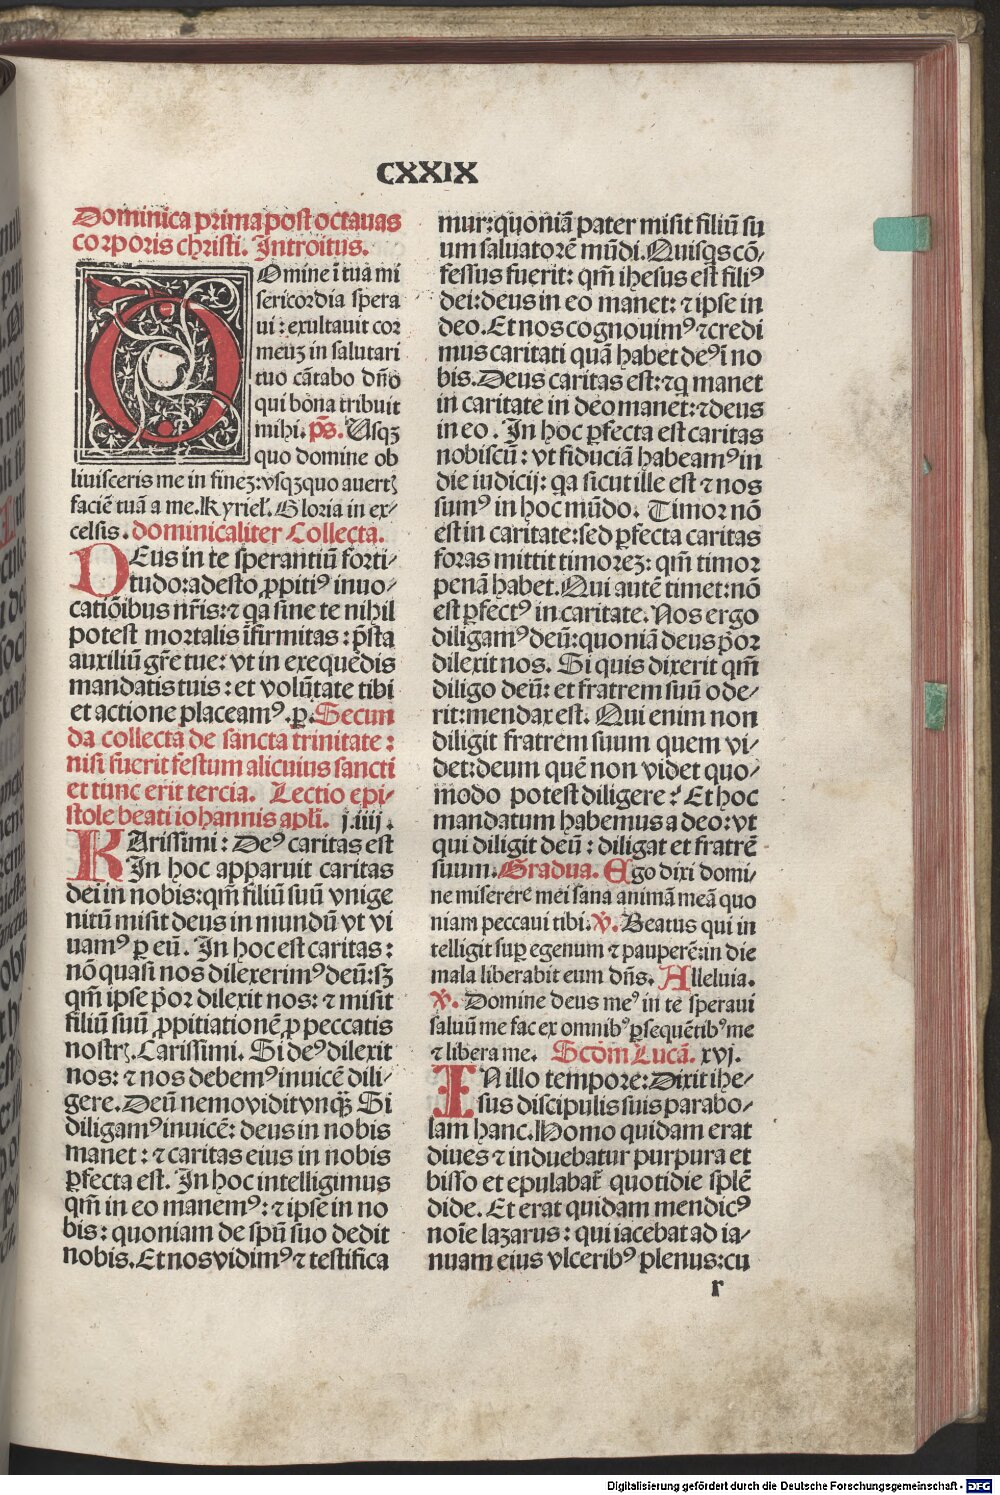 CXXIX
Dominica prima post octauas
corporis christi. Introitus.
Omine ī tua mi
sericordia spera
ui : exultauit cor
meuꝫ in salutari
tuo cātabo dn̄o
qui bona tribuit
mihi. p̄s. Usqꝫ
quo domine ob
liuisceris me in fineꝫ: vsqꝫquo auertꝭ
faciē tuā a me. Kyriel'. Gloria in ex⸗
celsis. dominicaliter Collecta.
DEus in te sperantiū forti⸗
tudo: adesto ꝓpitiꝰ inuo⸗
catiōibus nr̄is: ⁊ qa sine te nihil
potest mortalis īfirmitas : p̄sta
auxiliū gr̄e tue: vt in exequēdis
mandatis tuis : et volūtate tibi
et actione placeamꝰ. ꝑ. Secun
da collecta de sancta trinitate :
nisi fuerit festum alicuius sancti
et tunc erit tercia. Lectio epi⸗
stole beati iohannis apl̄i. j.iiij.
KArissimi : Deꝰ caritas est
In hoc apparuit caritas
dei in nobis: qm̄ filiū suū vnige
nitū misit deus in mundū vt vi
uamꝰ ꝑ eū. In hoc est caritas :
nō quasi nos dilexerimꝰ deū: sꝫ
qm̄ ipse p̄or dilexit nos: ⁊ misit
filiū suū ꝓpitiationē ꝓ peccatis
nostrꝭ. Carissimi. Si deꝰ dilexit
nos: ⁊ nos debemꝰ inuicē dili⸗
gere. Deū nemo vidit vnqꝫ̄ Si
diligamꝰ inuicē: deus in nobis
manet : ⁊ caritas eius in nobis
ꝑfecta est. In hoc intelligimus
qm̄ in eo manemꝰ: ⁊ ipse in no
bis : quoniam de spū suo dedit
nobis. Et nos vidimꝰ ⁊ testifica
mur: quoniā pater misit filiū su
um saluatorē mūdi. Quisqs cō⸗
fessus fuerit: qm̄ ihesus est filiꝰ
dei: deus in eo manet: ⁊ ipse in
deo. Et nos cognouimꝰ ⁊ credi
mus caritati quā habet deꝰ ī no
bis. Deus caritas est: ⁊ q manet
in caritate in deo manet: ⁊ deus
in eo. In hoc ꝑfecta est caritas
nobiscū : vt fiduciā habeamꝰ in
die iudicij: qa sicut ille est ⁊ nos
sumꝰ in hoc mūdo. Timor nō
est in caritate: sed ꝑfecta caritas
foras mittit timoreꝫ: qm̄ timor
penā habet. Qui autē timet: nō
est ꝑfectꝰ in caritate. Nos ergo
diligamꝰ deū: quoniā deus p̄or
dilexit nos. Si quis dixerit qm̄
diligo deū: et fratrem suū ode⸗
rit: mendax est. Qui enim non
diligit fratrem suum quem vi⸗
det: deum quē non videt quo⸗
modo potest diligere? Et hoc
mandatum habemus a deo: vt
qui diligit deū : diligat et fratrē
suum. Gradua. Ego dixi domi⸗
ne miserere mei sana animā meā quo
niam peccaui tibi. ℣. Beatus qui in
telligit suꝑ egenum ⁊ pauperē: in die
mala liberabit eum dn̄s. Alleluia.
℣. Domine deus meꝰ in te speraui
saluū me fac ex omnibꝰ ꝑsequētibꝰ me
⁊ libera me. Scdm Lucā. xvj.
IN illo tempore: Dixit ihe⸗
sus discipulis suis parabo⸗
lam hanc. Homo quidam erat
diues ⁊ induebatur purpura et
bisso et epulabat̄ quotidie splē
dide. Et erat quidam mendicꝰ
noīe lazarus : qui iacebat ad ia⸗
nuam eius vlceribꝰ plenus: cu
r
Digitalisierung gefördert durch die Deutsche Forschungsgemeinschaft - DFG